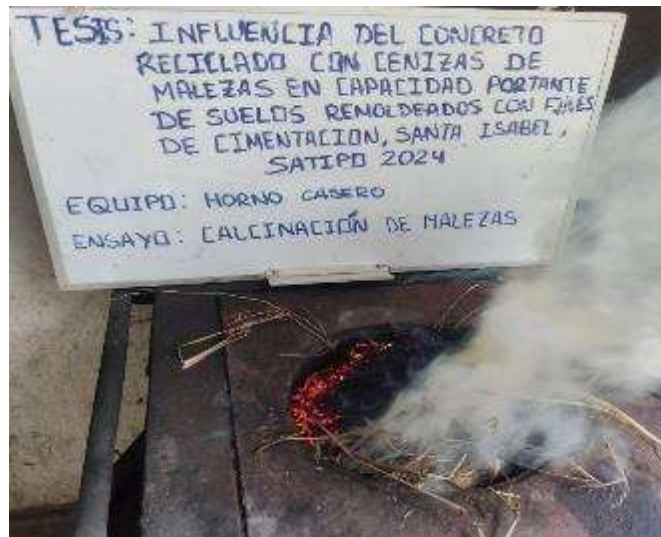 TESIS: INFLUENCIA DEL CONCRETO
RECICLADO CON CENIZAS DE
MALEZAS EN CAPACIDAD PORTANTE
DE SUELOS REMOLDEADOS CON FINES
DE CIMENTACION, SANTA ISABEL,
SATIPO 2024
EQUIPO: HORNO CASERO
ENSAYO: CALCINACIÓN DE MALEZAS